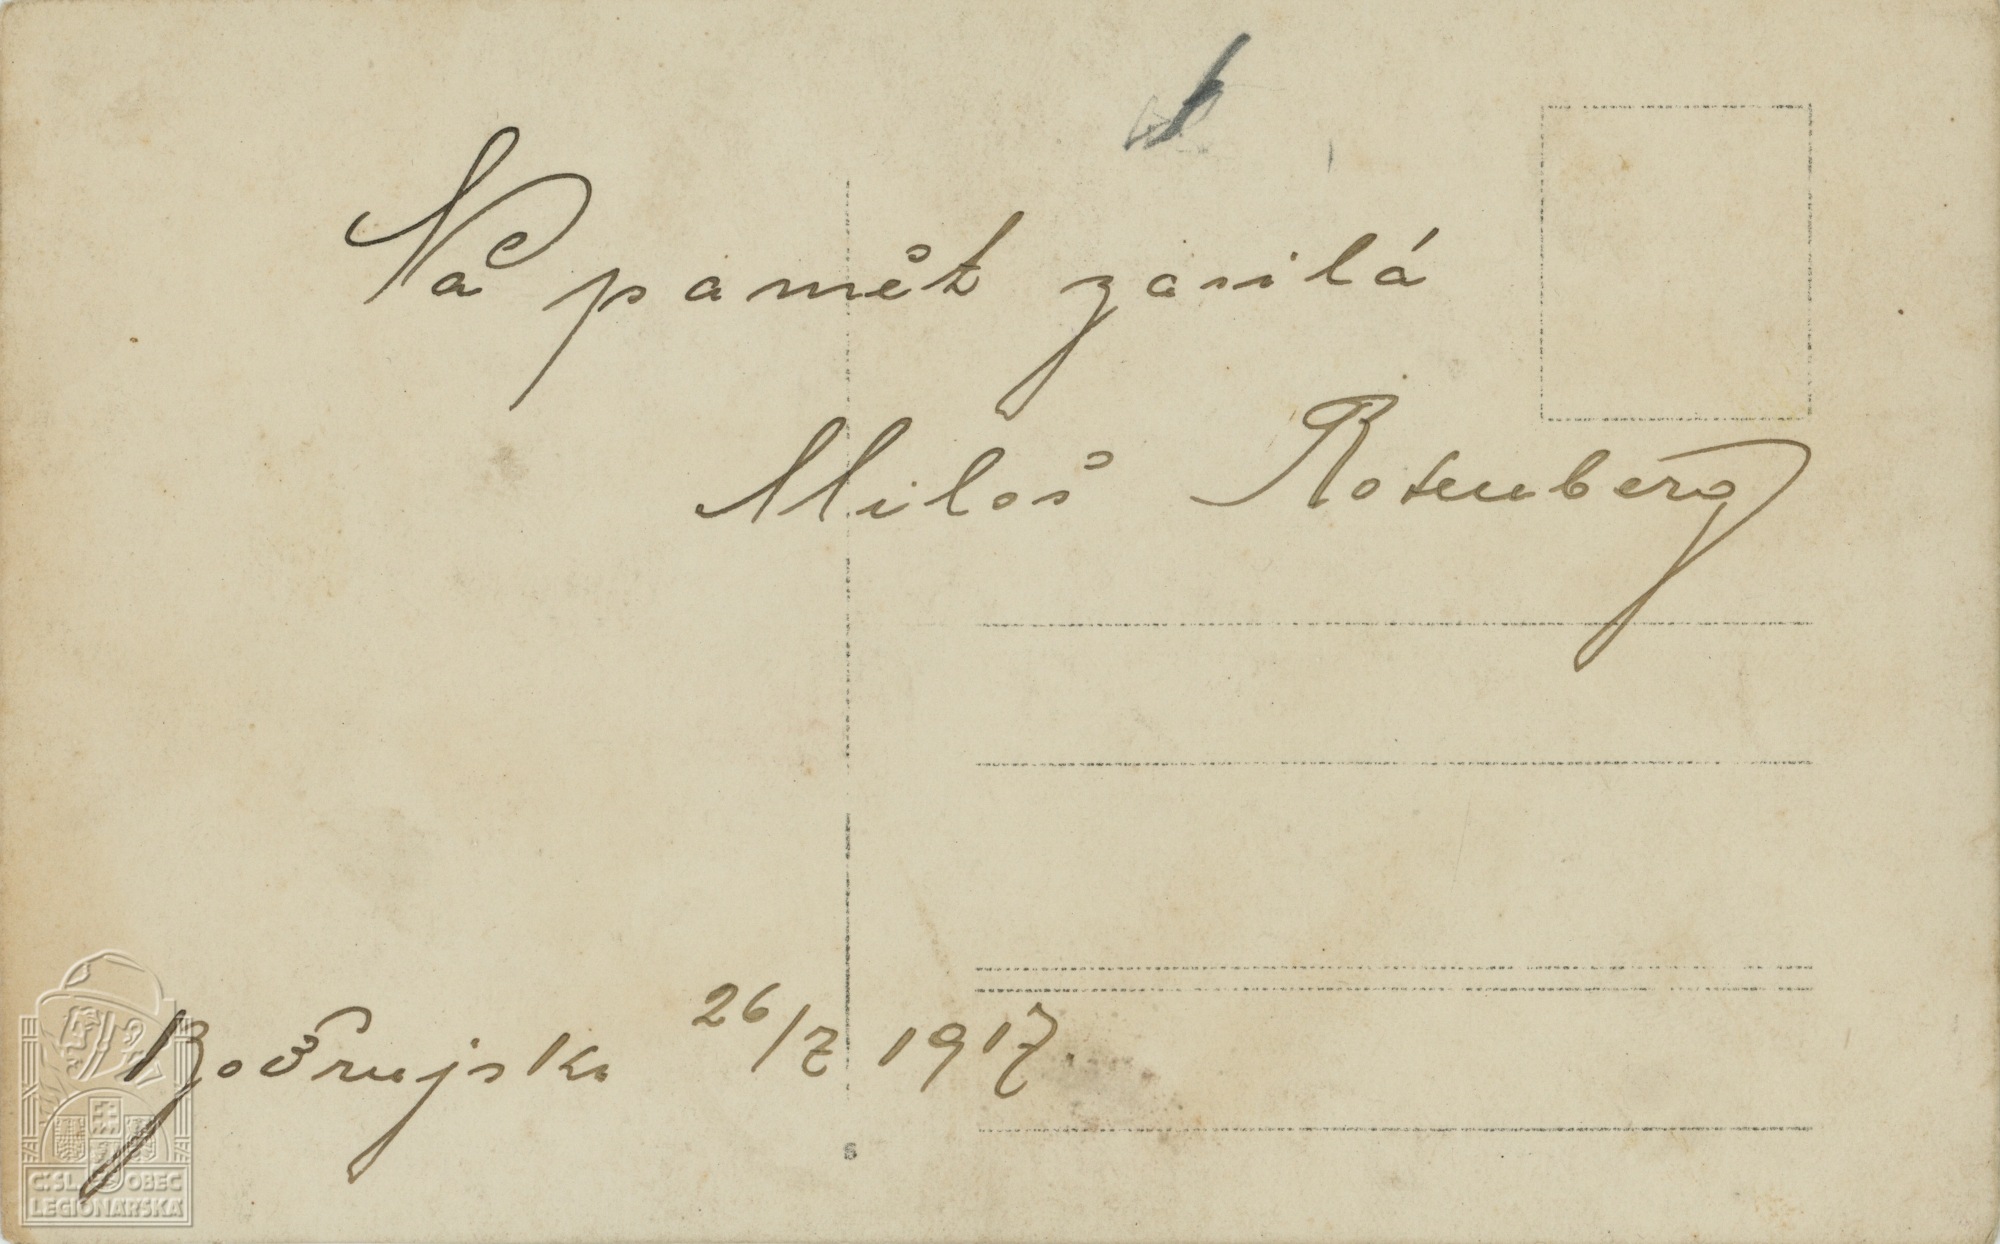 Na pamět zasilá
Miloš Rosenberg
Bobrujsk 26/7 1917.
6
Č.SL. OBEC
LEGIONÁŘSKÁ